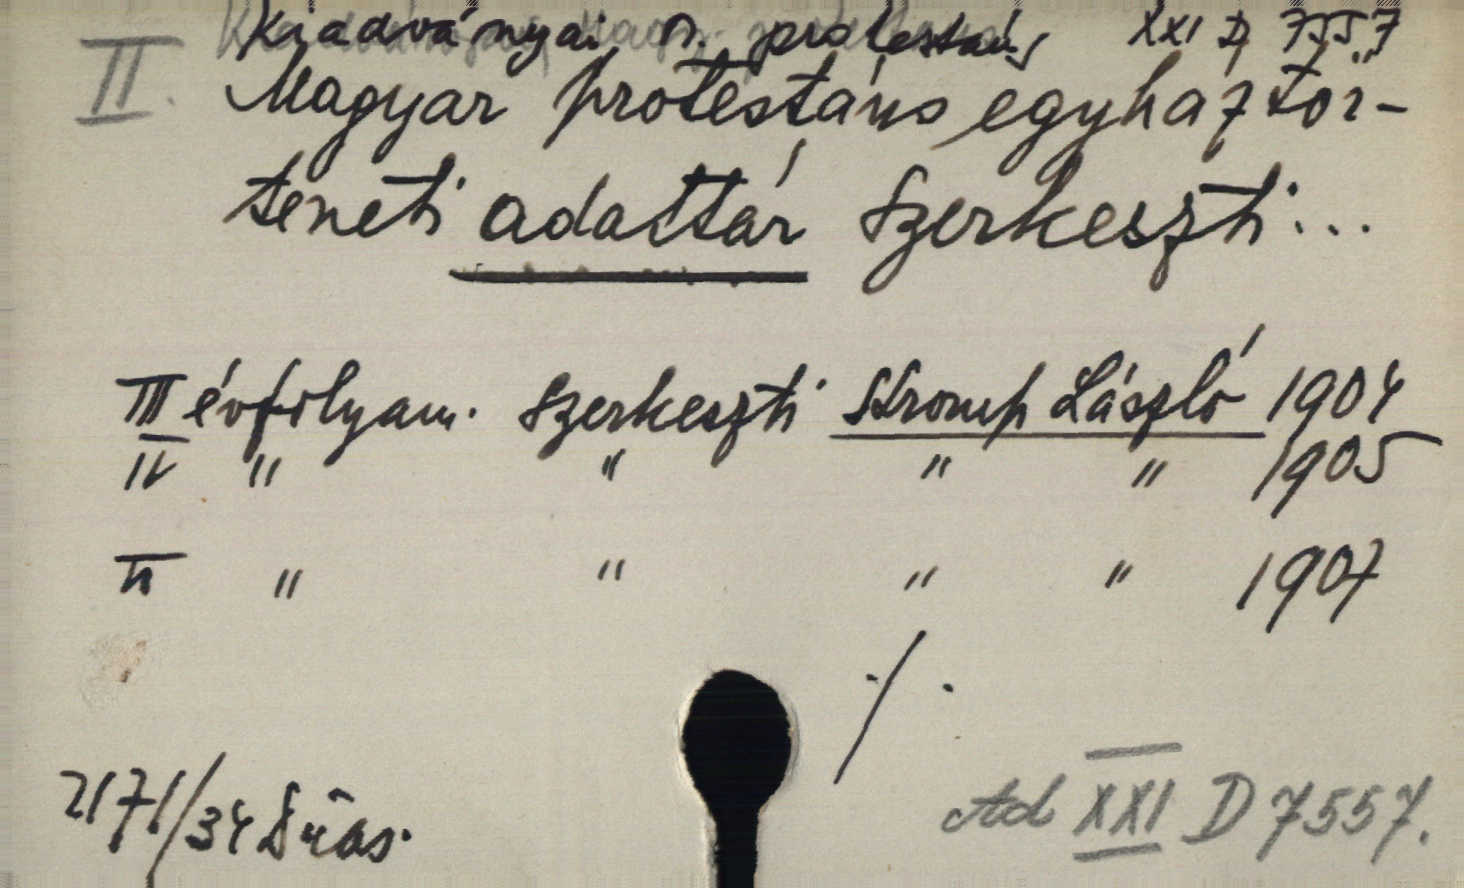 Kiadványai n. protestáns XXI D 7557
II. Magyar protestáns egyháztör-
téneti adattár Szerkeszti...
III évfolyam. Szerkeszti Stromp László 1904
IV " " " " 1905
" " " " 1907
./.
2171/34
Ad XXI D 7557.